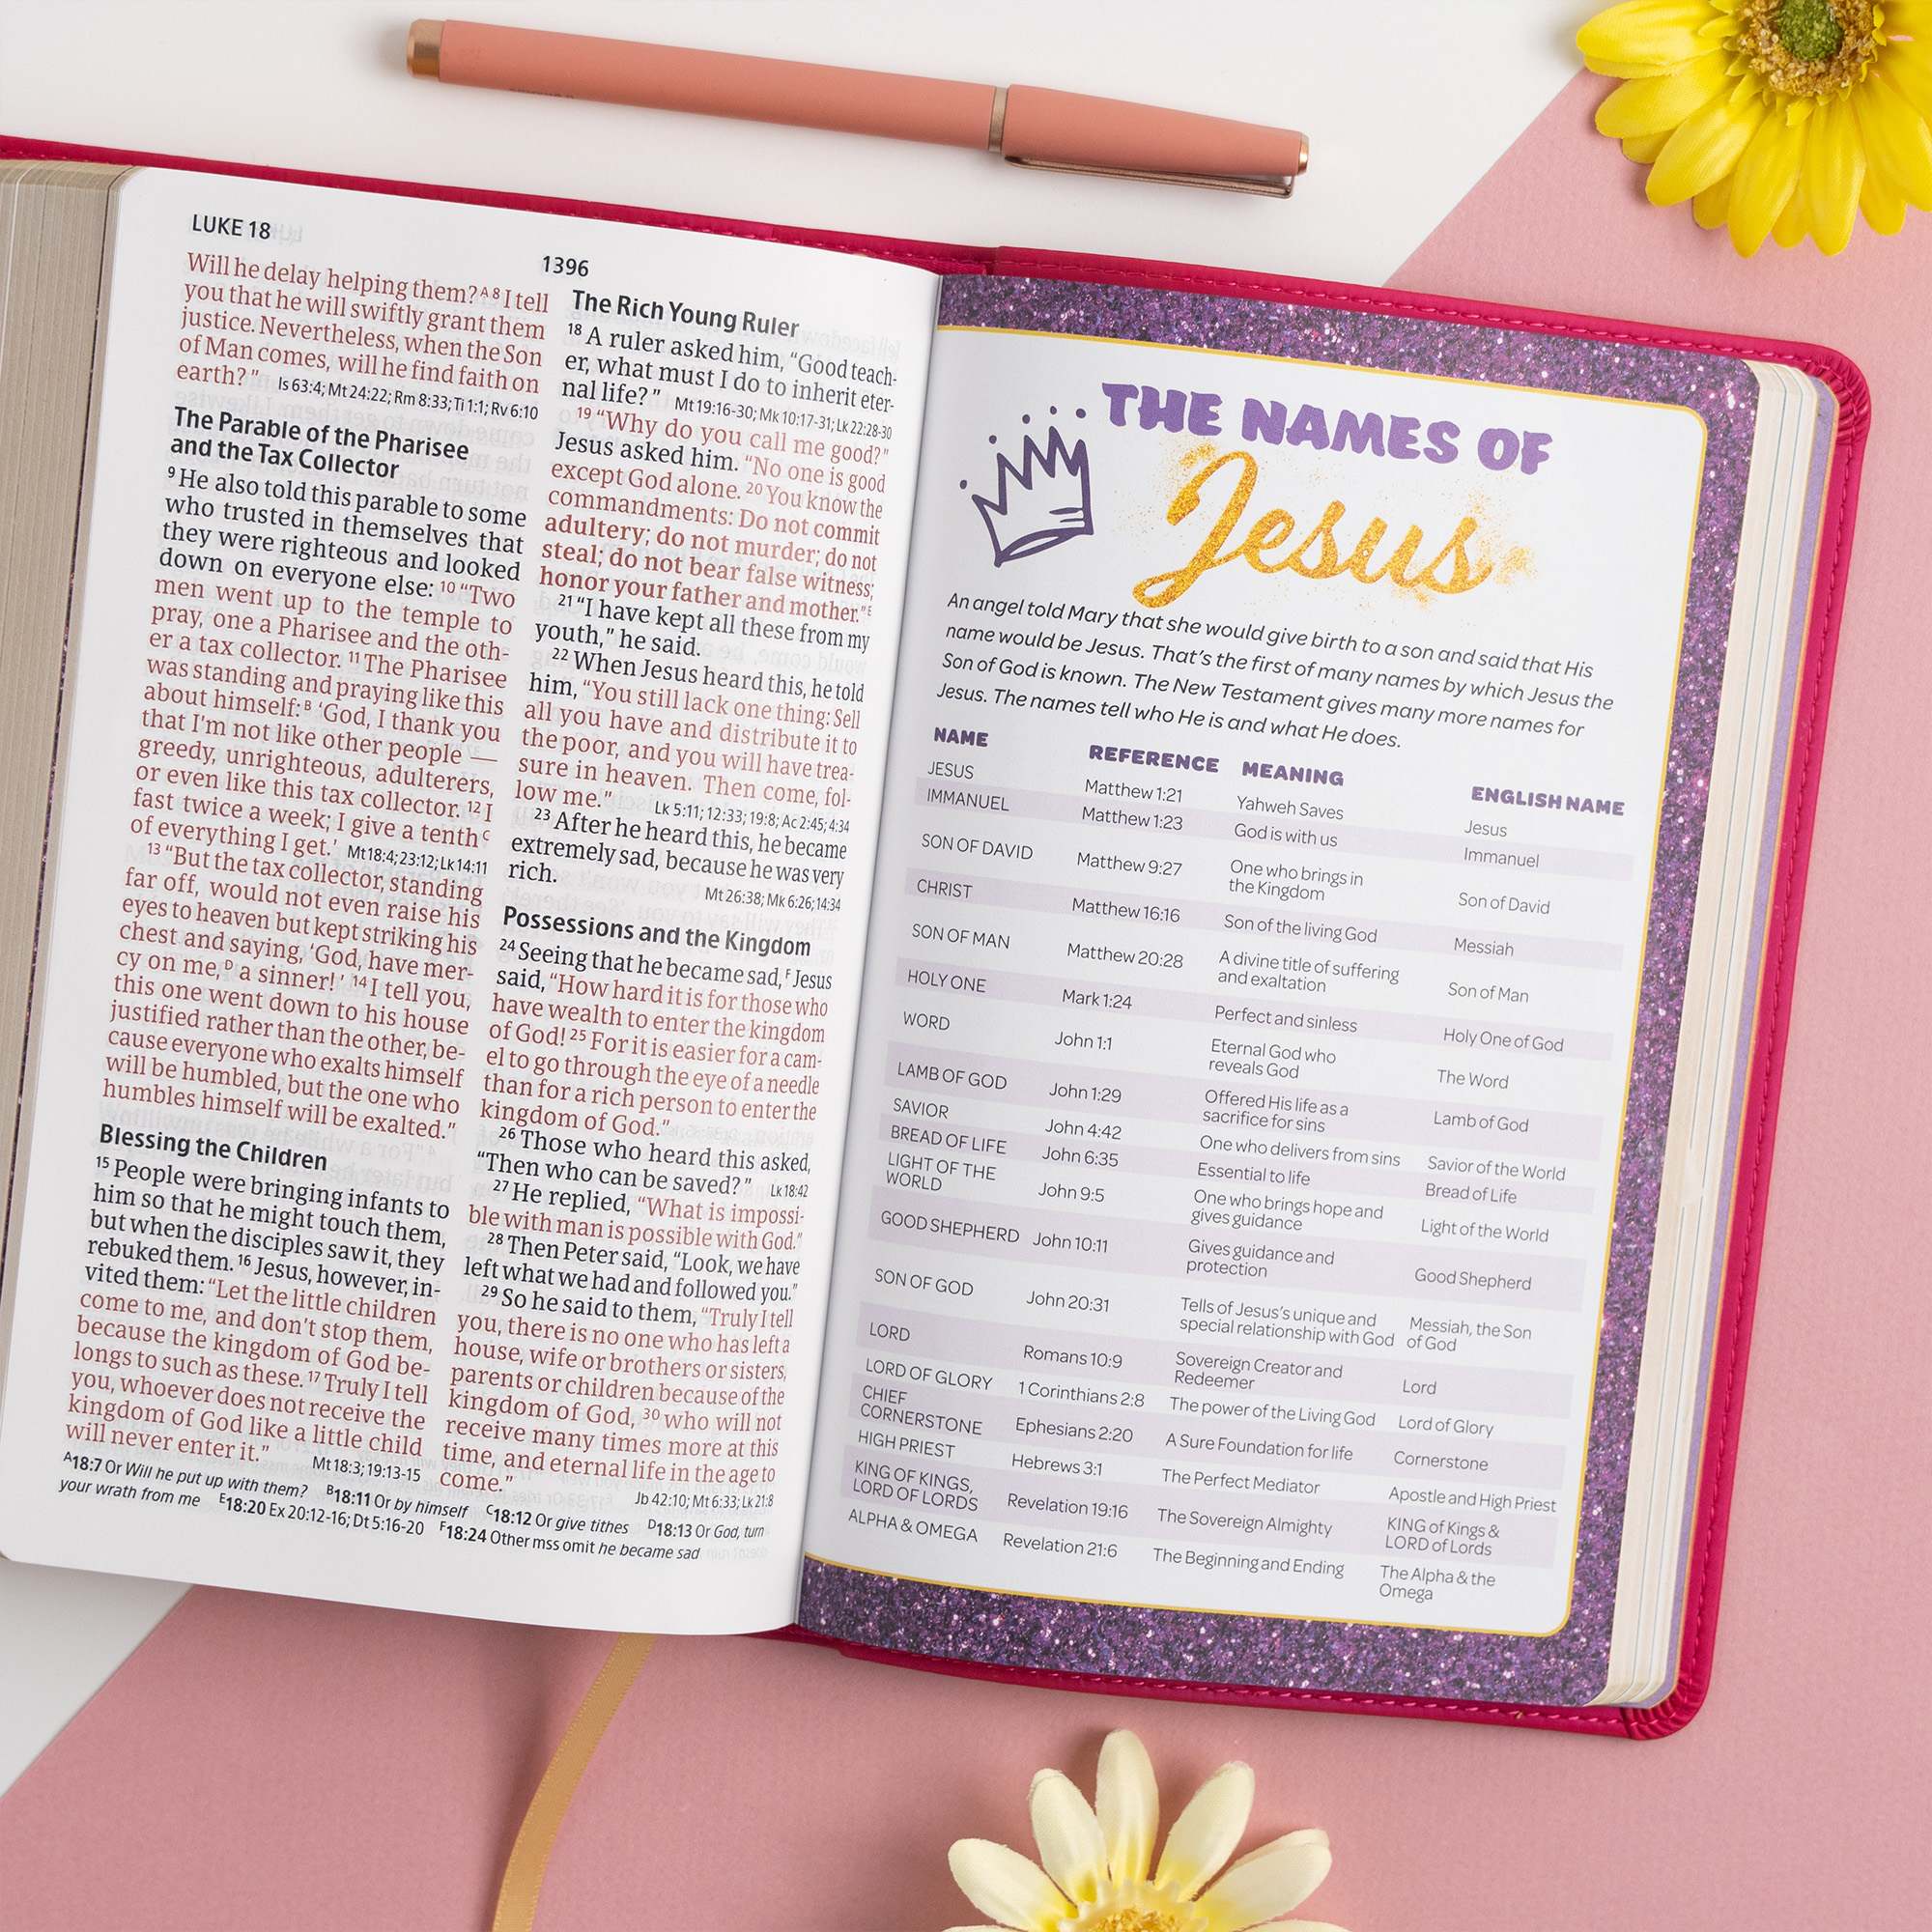 LUKE 18
1396
Will he delay helping them?ᴬ ⁸ I tell
you that he will swiftly grant them
justice. Nevertheless, when the Son
of Man comes, will he find faith on
earth?" Is 63:4; Mt 24:22; Rm 8:33; Ti 1:1; Rv 6:10
The Parable of the Pharisee
and the Tax Collector
⁹ He also told this parable to some
who trusted in themselves that
they were righteous and looked
down on everyone else: ¹⁰ "Two
men went up to the temple to
pray, one a Pharisee and the oth-
er a tax collector. ¹¹ The Pharisee
was standing and praying like this
about himself:ᴮ 'God, I thank you
that I'm not like other people —
greedy, unrighteous, adulterers,
or even like this tax collector. ¹² I
fast twice a week; I give a tenthᶜ
of everything I get.' Mt 18:4; 23:12; Lk 14:11
¹³ "But the tax collector, standing
far off, would not even raise his
eyes to heaven but kept striking his
chest and saying, 'God, have mer-
cy on me,ᴰ a sinner!' ¹⁴ I tell you,
this one went down to his house
justified rather than the other, be-
cause everyone who exalts himself
will be humbled, but the one who
humbles himself will be exalted."
Blessing the Children
¹⁵ People were bringing infants to
him so that he might touch them,
but when the disciples saw it, they
rebuked them. ¹⁶ Jesus, however, in-
vited them: "Let the little children
come to me, and don't stop them,
because the kingdom of God be-
longs to such as these. ¹⁷ Truly I tell
you, whoever does not receive the
kingdom of God like a little child
will never enter it." Mt 18:3; 19:13-15
The Rich Young Ruler
¹⁸ A ruler asked him, "Good teach-
er, what must I do to inherit eter-
nal life?" Mt 19:16-30; Mk 10:17-31; Lk 22:28-30
¹⁹ "Why do you call me good?"
Jesus asked him. "No one is good
except God alone. ²⁰ You know the
commandments: Do not commit
adultery; do not murder; do not
steal; do not bear false witness;
honor your father and mother."ᴱ
²¹ "I have kept all these from my
youth," he said.
²² When Jesus heard this, he told
him, "You still lack one thing: Sell
all you have and distribute it to
the poor, and you will have trea-
sure in heaven. Then come, fol-
low me." Lk 5:11; 12:33; 19:8; Ac 2:45; 4:34
²³ After he heard this, he became
extremely sad, because he was very
rich. Mt 26:38; Mk 6:26; 14:34
Possessions and the Kingdom
²⁴ Seeing that he became sad,ꟳ Jesus
said, "How hard it is for those who
have wealth to enter the kingdom
of God! ²⁵ For it is easier for a cam-
el to go through the eye of a needle
than for a rich person to enter the
kingdom of God."
²⁶ Those who heard this asked,
"Then who can be saved?" Lk 18:42
²⁷ He replied, "What is impossi-
ble with man is possible with God."
²⁸ Then Peter said, "Look, we have
left what we had and followed you."
²⁹ So he said to them, "Truly I tell
you, there is no one who has left a
house, wife or brothers or sisters,
parents or children because of the
kingdom of God, ³⁰ who will not
receive many times more at this
time, and eternal life in the age to
come." Jb 42:10; Mt 6:33; Lk 21:8
ᴬ18:7 Or Will he put up with them? ᴮ18:11 Or by himself ᶜ18:12 Or give tithes ᴰ18:13 Or God, turn
your wrath from me ᴱ18:20 Ex 20:12-16; Dt 5:16-20 ꟳ18:24 Other mss omit he became sad
THE NAMES OF
Jesus
An angel told Mary that she would give birth to a son and said that His
name would be Jesus. That's the first of many names by which Jesus the
Son of God is known. The New Testament gives many more names for
Jesus. The names tell who He is and what He does.
NAME REFERENCE MEANING ENGLISH NAME
JESUS Matthew 1:21 Yahweh Saves Jesus
IMMANUEL Matthew 1:23 God is with us Immanuel
SON OF DAVID Matthew 9:27 One who brings in
the Kingdom Son of David
CHRIST Matthew 16:16 Son of the living God Messiah
SON OF MAN Matthew 20:28 A divine title of suffering
and exaltation Son of Man
HOLY ONE Mark 1:24 Perfect and sinless Holy One of God
WORD John 1:1 Eternal God who
reveals God The Word
LAMB OF GOD John 1:29 Offered His life as a
sacrifice for sins Lamb of God
SAVIOR John 4:42 One who delivers from sins Savior of the World
BREAD OF LIFE John 6:35 Essential to life Bread of Life
LIGHT OF THE
WORLD John 9:5 One who brings hope and
gives guidance Light of the World
GOOD SHEPHERD John 10:11 Gives guidance and
protection Good Shepherd
SON OF GOD John 20:31 Tells of Jesus's unique and
special relationship with God Messiah, the Son
of God
LORD Romans 10:9 Sovereign Creator and
Redeemer Lord
LORD OF GLORY 1 Corinthians 2:8 The power of the Living God Lord of Glory
CHIEF
CORNERSTONE Ephesians 2:20 A Sure Foundation for life Cornerstone
HIGH PRIEST Hebrews 3:1 The Perfect Mediator Apostle and High Priest
KING OF KINGS,
LORD OF LORDS Revelation 19:16 The Sovereign Almighty KING of Kings &
LORD of Lords
ALPHA & OMEGA Revelation 21:6 The Beginning and Ending The Alpha & the
Omega